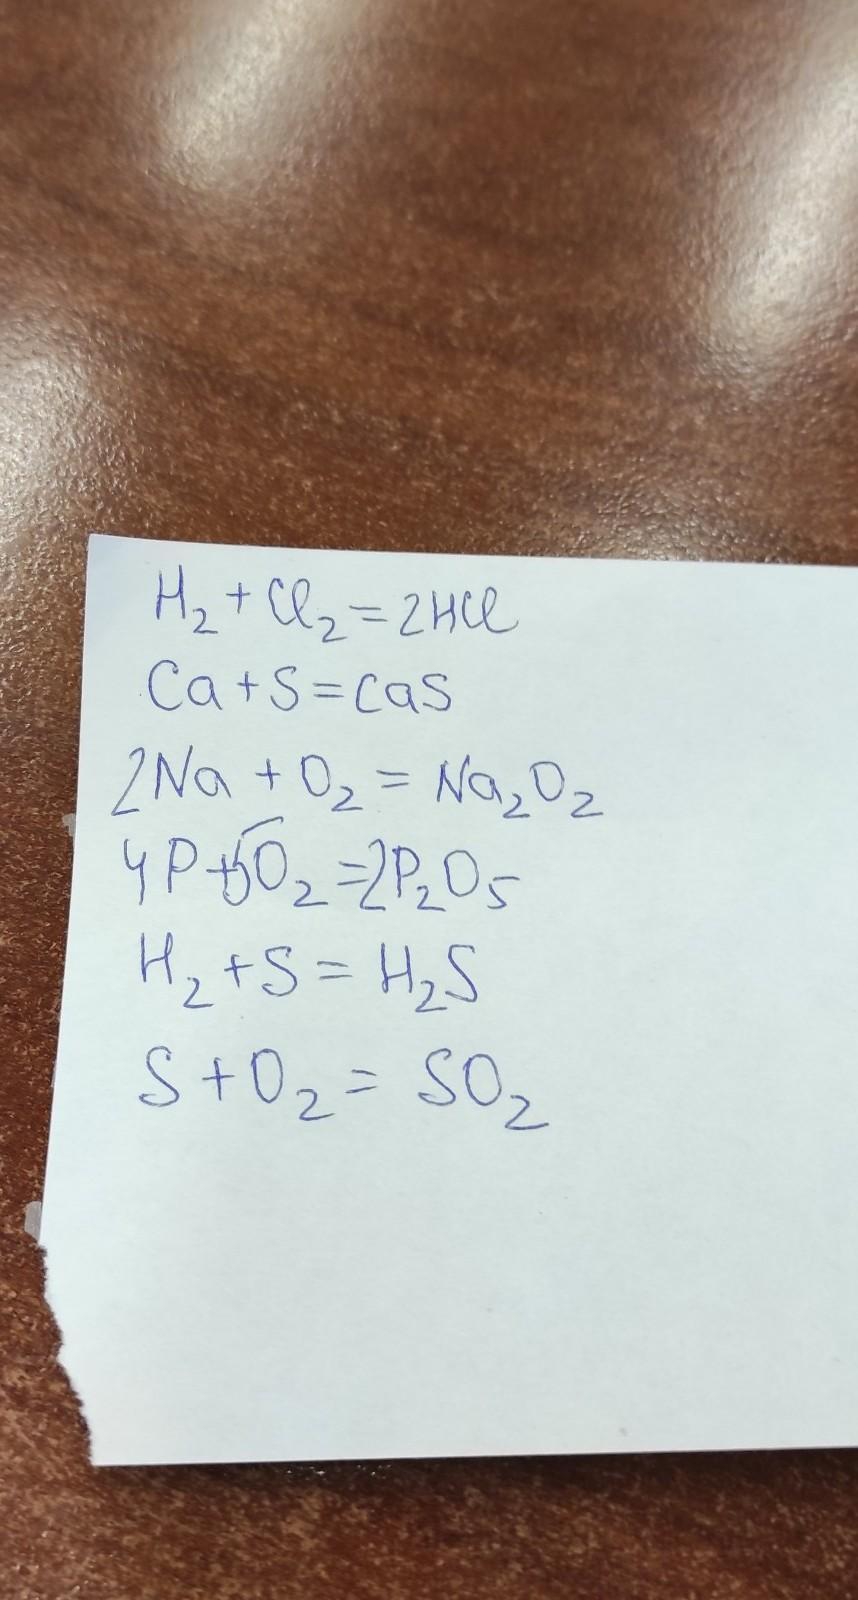 H₂ + Cl₂ = 2HCl
Ca + S = CaS
2Na + O₂ = Na₂O₂
4P + 5O₂ = 2P₂O₅
H₂ + S = H₂S
S + O₂ = SO₂